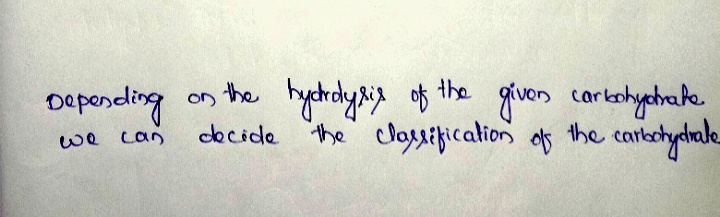 Depending on the hydrolysis of the given carbohydrate
we can decide the classification of the carbohydrate